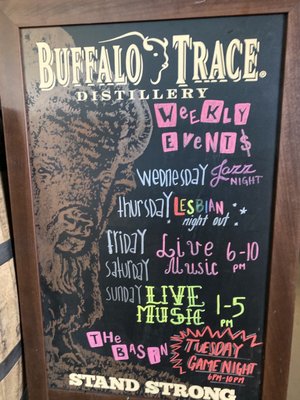 BUFFALO TRACE®
DISTILLERY
WEEKLY
EVENTS
WEDNESDAY Jazz
NIGHT
THURSDAY LESBIAN
night out
FRIDAY Live 6-10
SATURDAY Music PM
SUNDAY LIVE
MUSIC 1-5
PM
THE
BASIN
TUESDAY
GAME NIGHT
6PM-10PM
STAND STRONG